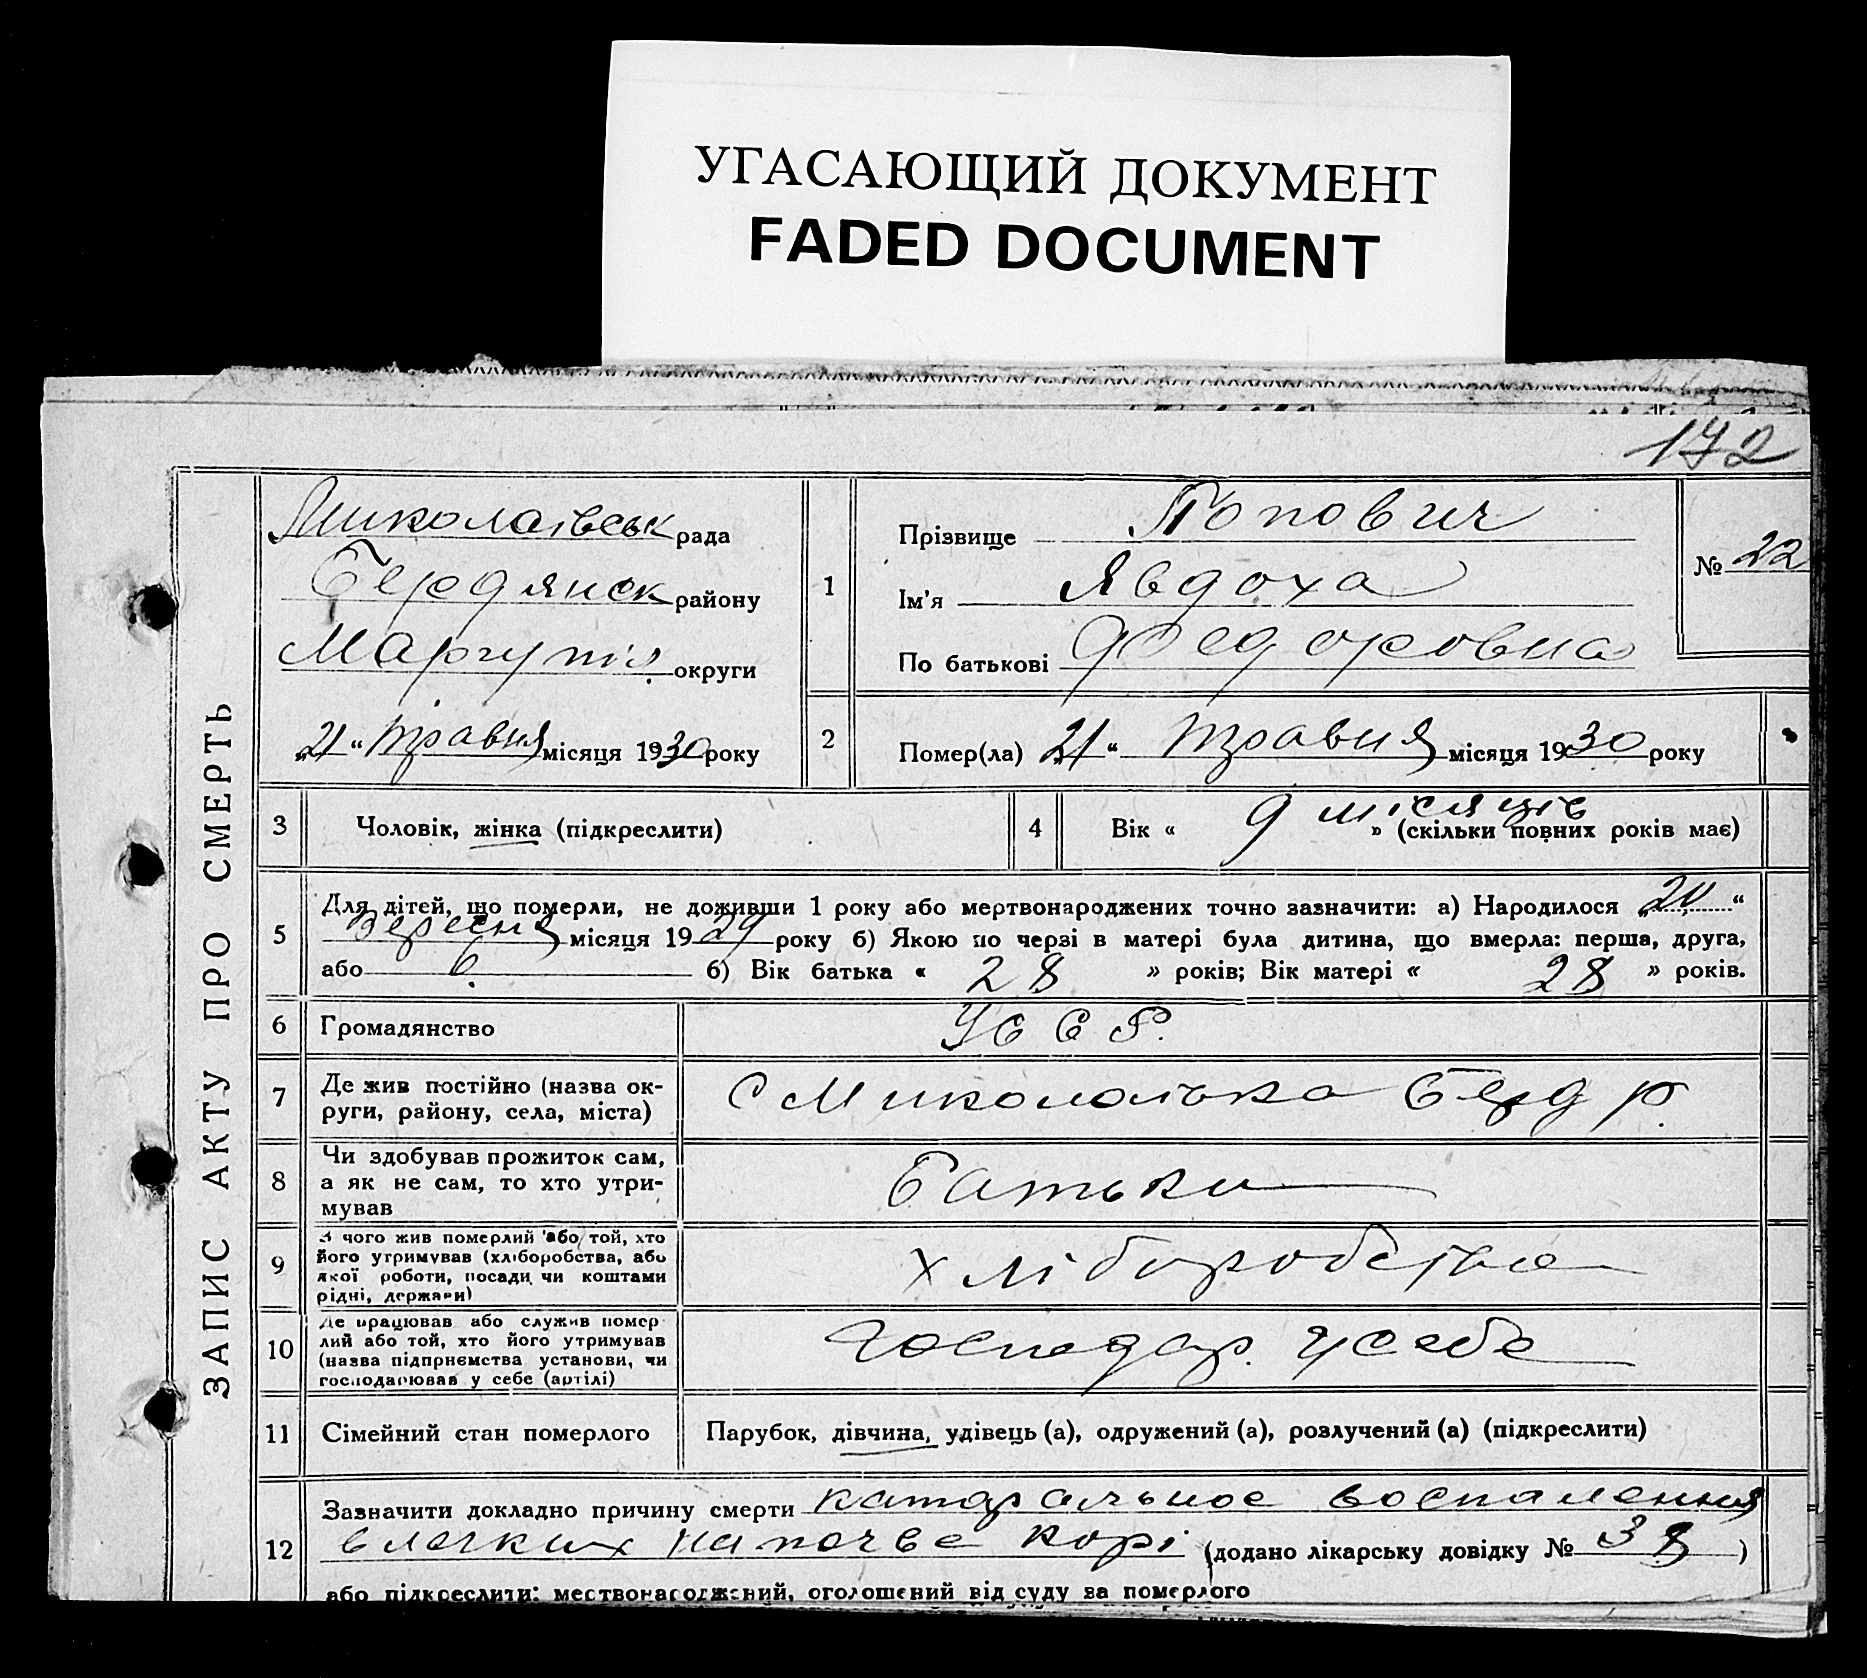 УГАСАЮЩИЙ ДОКУМЕНТ
FADED DOCUMENT
172
ЗАПИС АКТУ ПРО СМЕРТЬ
Миколаївськ рада
Бердянск району
Маріупіл. округи
„21“ травня місяця 1930 року
1
Прізвище Попович
Ім'я Явдоха
По батькові Федоровна
№ 22
2
Помер(ла) „21“ травня місяця 1930 року
3 Чоловік, жінка (підкреслити)
4 Вік « 9 місяців » (скільки повних років має)
5
Для дітей, що померли, не доживши 1 року або мертвонароджених точно зазначити: а) Народилося „ “
Вересня місяця 1929 року б) Якою по черзі в матері була дитина, що вмерла: перша, друга,
або 6. б) Вік батька « 28 » років; Вік матері « 28 » років.
6 Громадянство УССР.
7
Де жив постійно (назва ок-
руги, району, села, міста)
с Миколаївка Берд р.
8
Чи здобував прожиток сам,
а як не сам, то хто утри-
мував
Батьки
9
З чого жив померлий або той, хто
його утримував (хліборобства, або
якої роботи, посади, чи коштами
рідні, держави)
хліборобства
10
Де працював або служив помер
лий або той, хто його утримував
(назва підприємства установи, чи
господарював у себе (артілі)
Господар. у себе
11 Сімейний стан померлого
Парубок, дівчина, удівець (а), одружений (а), розлучений (а) (підкреслити)
12
Зазначити докладно причину смерти катаральное воспаления
в легких на почве корі (додано лікарську довідку № 38)
або підкреслити: мертвонароджений, оголошений від суду за померлого